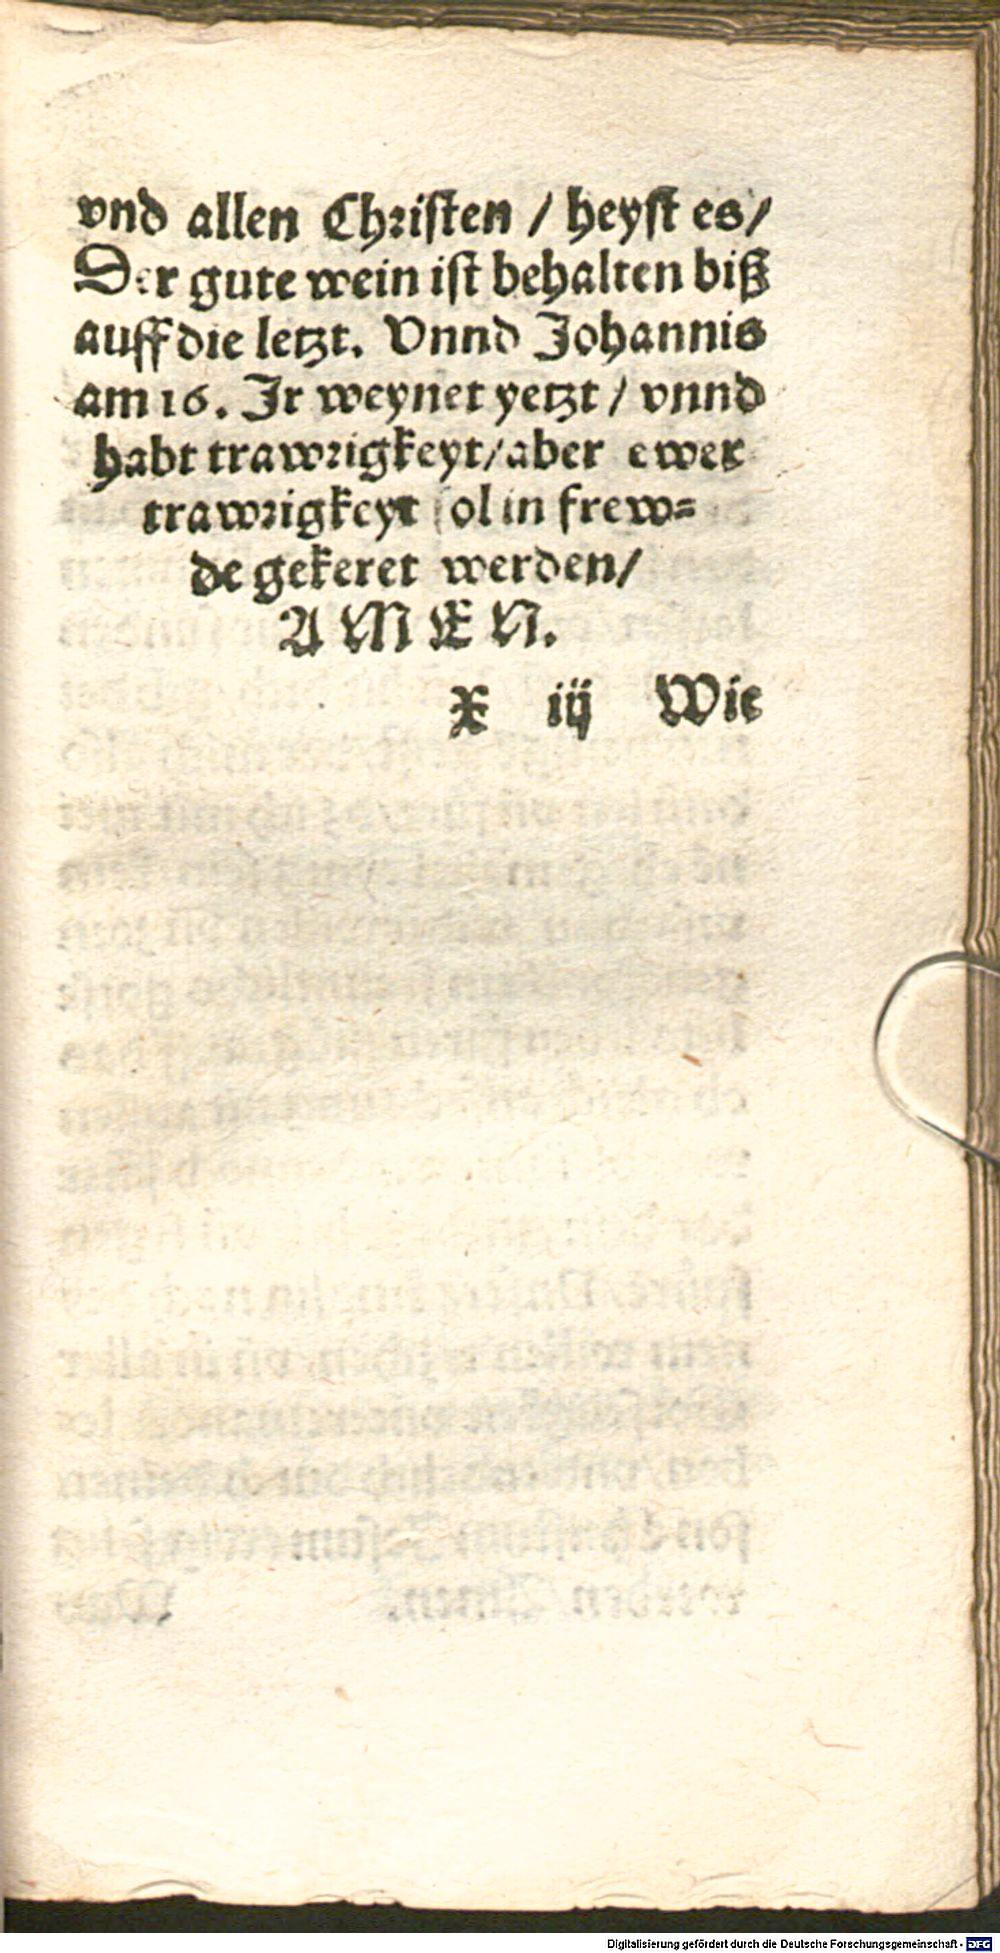 vnd allen Christen / heyst es/
Der gute wein ist behalten biß
auff die letzt. Vnnd Johannis
am 16. Ir weynet yetzt / vnnd
habt trawrigkeyt/aber ewer
trawrigkeyt sol in frew=
de gekeret werden/
AMEN.
X iij Wie
Digitalisierung gefördert durch die Deutsche Forschungsgemeinschaft - DFG